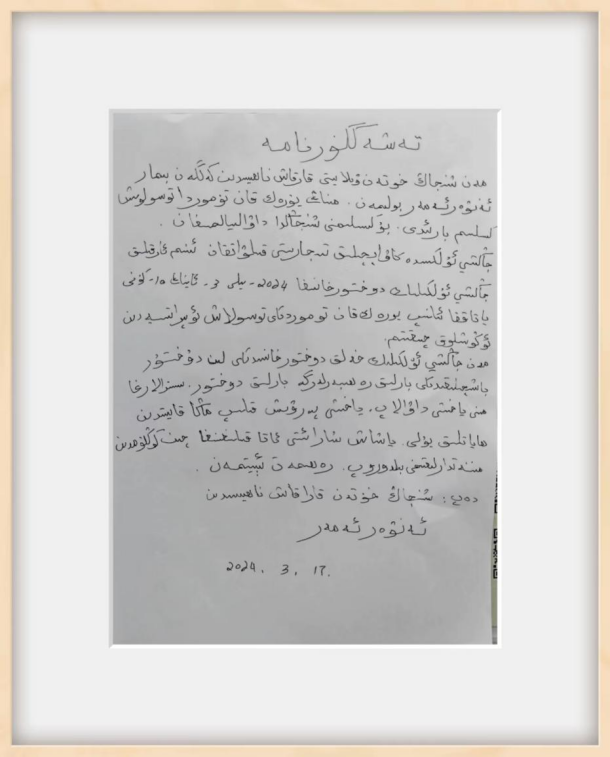 تەشەككۈرنامە
مەن شىنجاڭ خوتەن ۋىلايىتى قاراقاش ناھىيىسىدىن كەلگەن بىمار
ئەنۋەر ئەمەر بولىمەن. مىنىڭ يۈرەك قان تومۇردا توسۇلۇش
كىسلىم بار ئىدى. بۇ كىسلىمنى شىنجاڭدا داۋالىيالمىغان.
جاڭشى ئۆلكىسدە كاۋاپچىلىق تىجارىتى قىلىۋاتقان ئىنىم ئارقىلىق
جاڭشى ئۆلكىلىك دوختۇرخانىغا 2024-يىلى 3-ئاينىڭ 10-كۈنى
ياتاققا ئېلىنىپ يۈرەك قان تومۇردىكى توسۇلاش ئوپراتسىيەدىن
ئوڭۇشلۇق چىقتىم.
مەن جاڭشى ئۆلكىلىك خەلق دوختۇرخانىسىدىكى دوختۇر
باشچىلىقىدىكى بارلىق رەھبەرلەرگە بارلىق دوختۇر. سىزلارغا
مىنى ياخشى داۋالاپ، ياخشى پەرۋىش قىلىپ ماڭا قايتىدىن
ھاياتلىق يولى، ياشاش شارائىتى ئاتا قىلغىنىغا چىن كۆڭلۈمدىن
مىننەتدارلىقىمنى بىلدۈرۈپ، رەھمەت ئېيتىمەن.
دەپ: شىنجاڭ خوتەن قاراقاش ناھىيىسىدىن
ئەنۋەر ئەمەر
2024. 3. 17.